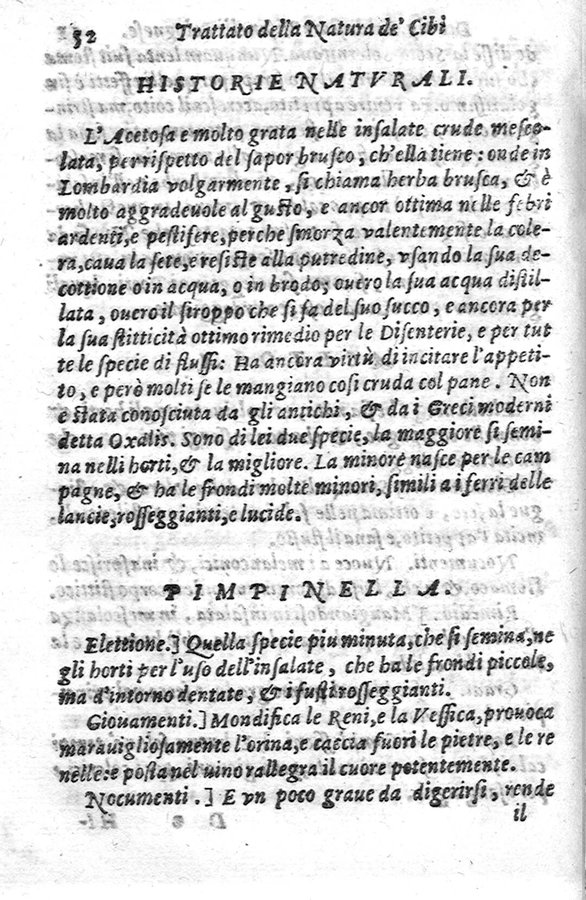 52 Trattato della Natura de' Cibi
HISTORIE NATVRALI.
L'Acetosa e molto grata nelle insalate crude mesco-
lata, per rispetto del sapor brusco, ch'ella tiene: onde in
Lombardia volgarmente, si chiama herba brusca, & è
molto aggradeuole al gusto, e ancor ottima nelle febri
ardenti, e pestifere, perche smorza valentemente la cole-
ra, caua la sete, e resiste alla putredine, vsando la sua de-
cottione o in acqua, o in brodo; ouero la sua acqua distil-
lata, ouero il siroppo che si fa del suo succo, e ancora per
la sua stitticità ottimo rimedio per le Disenterie, e per tut
te le specie di flussi: Ha ancora virtù di incitare l'appeti-
to, e però molti se le mangiano cosi cruda col pane. Non
e stata conosciuta da gli antichi, & da i Greci moderni
detta Oxalis. Sono di lei due specie, la maggiore si semi-
na nelli horti, & la migliore. La minore nasce per le cam
pagne, & ha le frondi molte minori, simili a i ferri delle
lancie, rosseggianti, e lucide.
PIMPINELLA.
Elettione.] Quella specie piu minuta, che si semina, ne
gli horti per l'uso dell'insalate, che ha le frondi piccole,
ma d'intorno dentate, & i fusti rosseggianti.
Giouamenti.] Mondifica le Reni, e la Vessica, prouoca
marauigliosamente l'orina, e caccia fuori le pietre, e le re
nelle: e posta nel uino rallegra il cuore potentemente.
Nocumenti.] E vn poco graue da digerirsi, rende
il